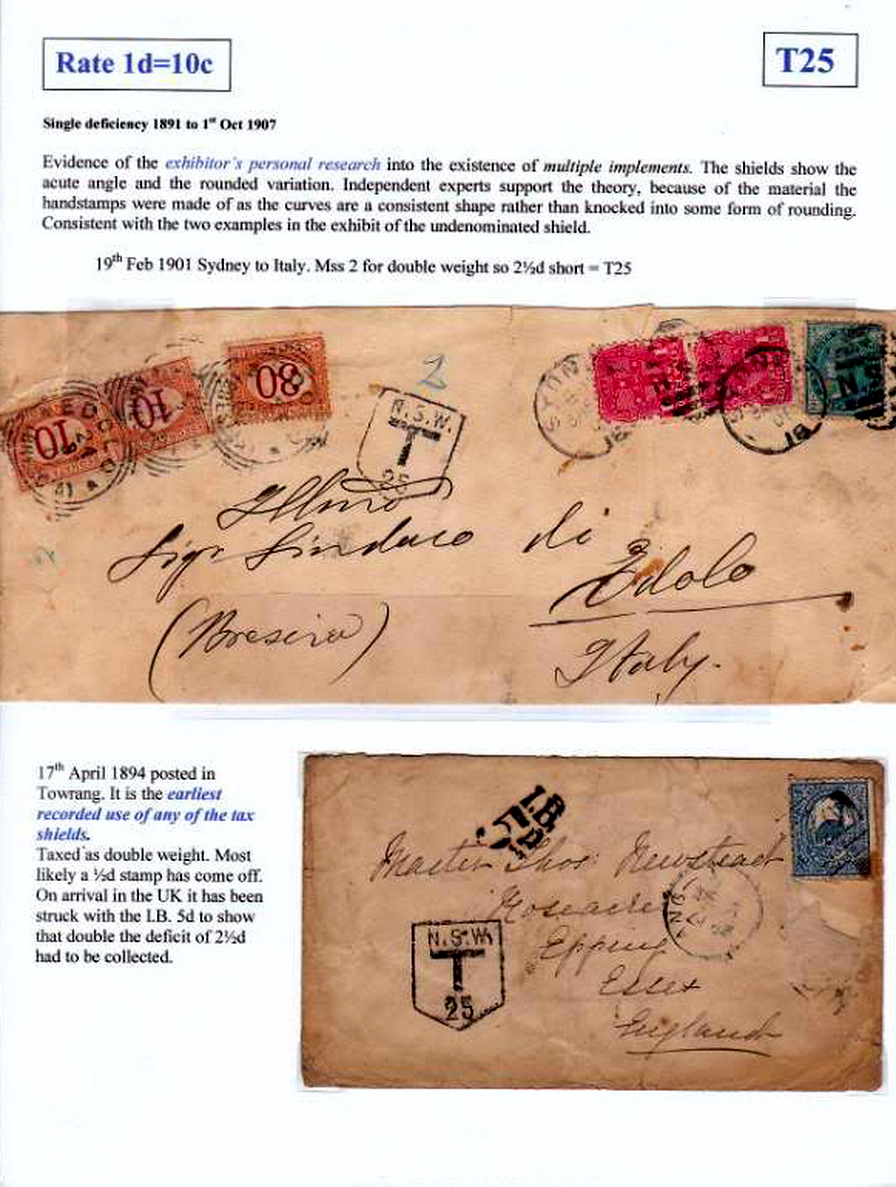 Rate 1d=10c
T25
Single deficiency 1891 to 1st Oct 1907
Evidence of the exhibitor's personal research into the existence of multiple implements. The shields show the
acute angle and the rounded variation. Independent experts support the theory, because of the material the
handstamps were made of as the curves are a consistent shape rather than knocked into some form of rounding.
Consistent with the two examples in the exhibit of the undenominated shield.
19th Feb 1901 Sydney to Italy. Mss 2 for double weight so 2½d short = T25
10
10
80
2
N.S.W.
T
25
Illmo
Sigr Sindaco di
Edolo
(Brescia)
Italy.
17th April 1894 posted in
Towrang. It is the earliest
recorded use of any of the tax
shields.
Taxed as double weight. Most
likely a ½d stamp has come off.
On arrival in the UK it has been
struck with the LB. 5d to show
that double the deficit of 2½d
had to be collected.
I.B.
5D
Master Thos: Newstead
Roseacre
Epping
Essex
England
N.S.W.
T
25